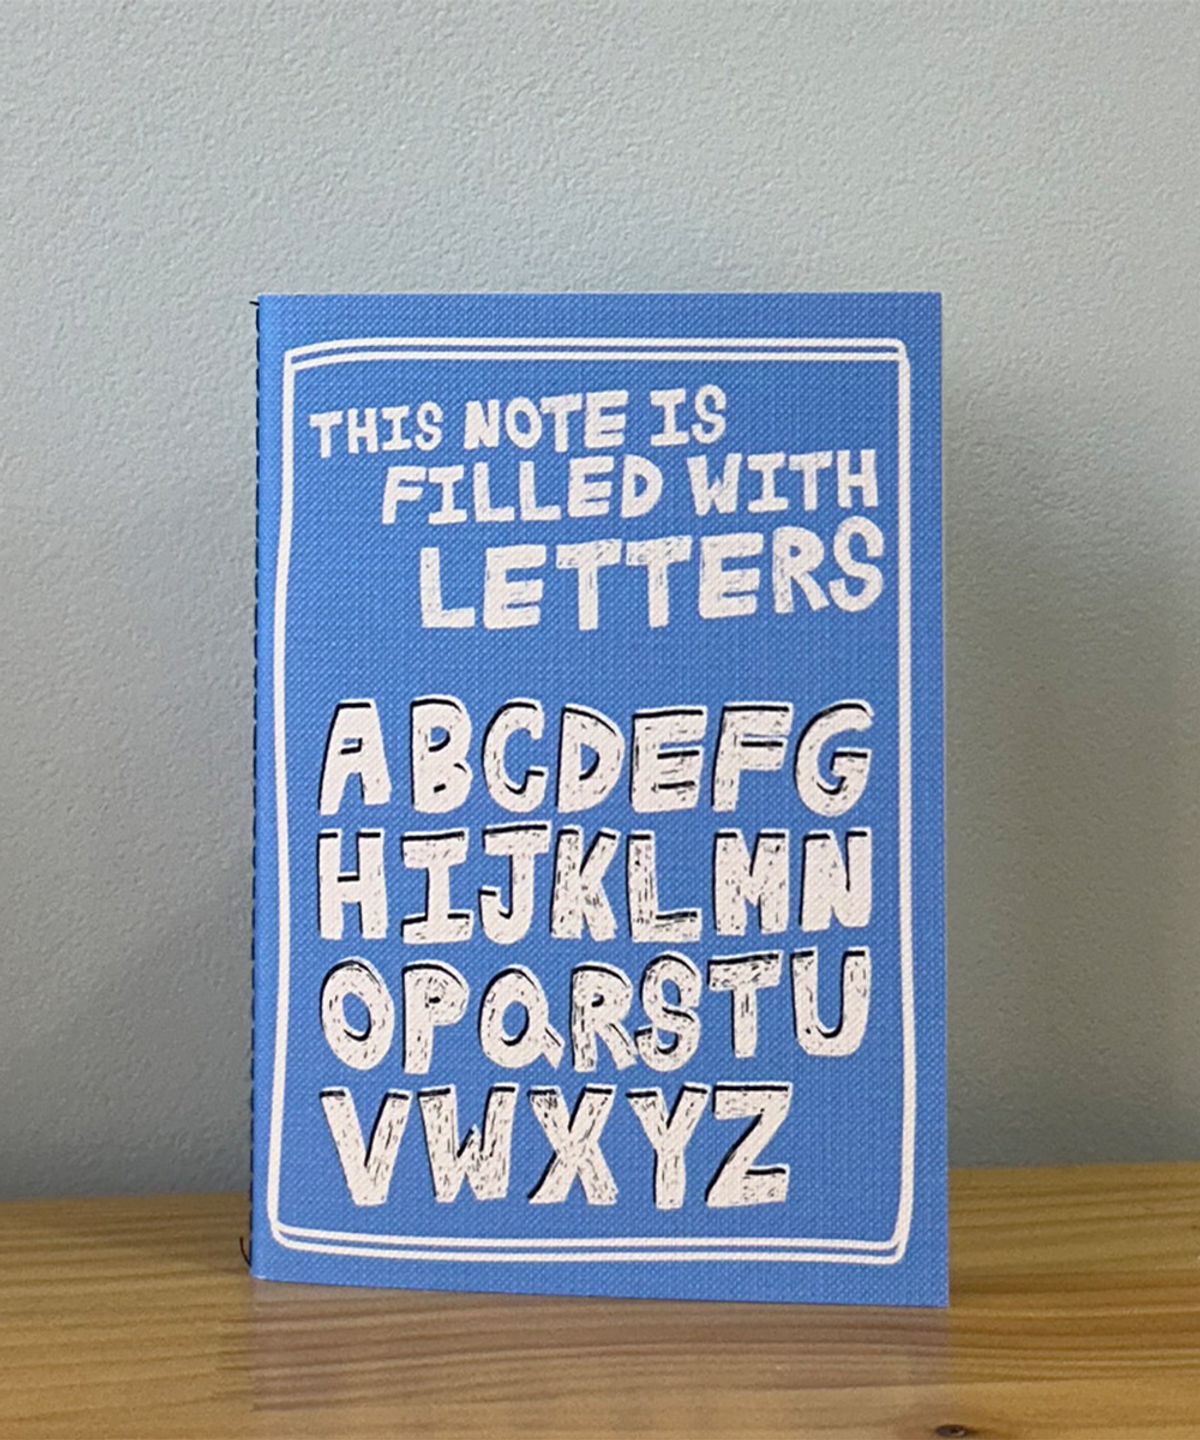 THIS NOTE IS
FILLED WITH
LETTERS
ABCDEFG
HIJKLMN
OPQRSTU
VWXYZ